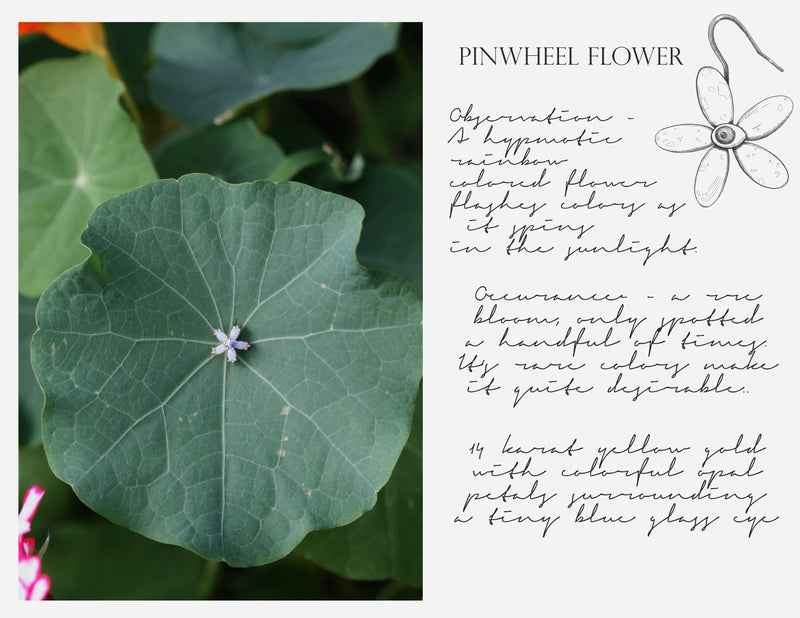 PINWHEEL FLOWER
Observation -
A hypnotic
rainbow
colored flower
flashes colors as
it spins
in the sunlight.
Occurances - a rare
bloom, only spotted
a handful of times.
It's rare colors make
it quite desirable..
14 karat yellow gold
with colorful opal
petals surrounding
a tiny blue glass eye